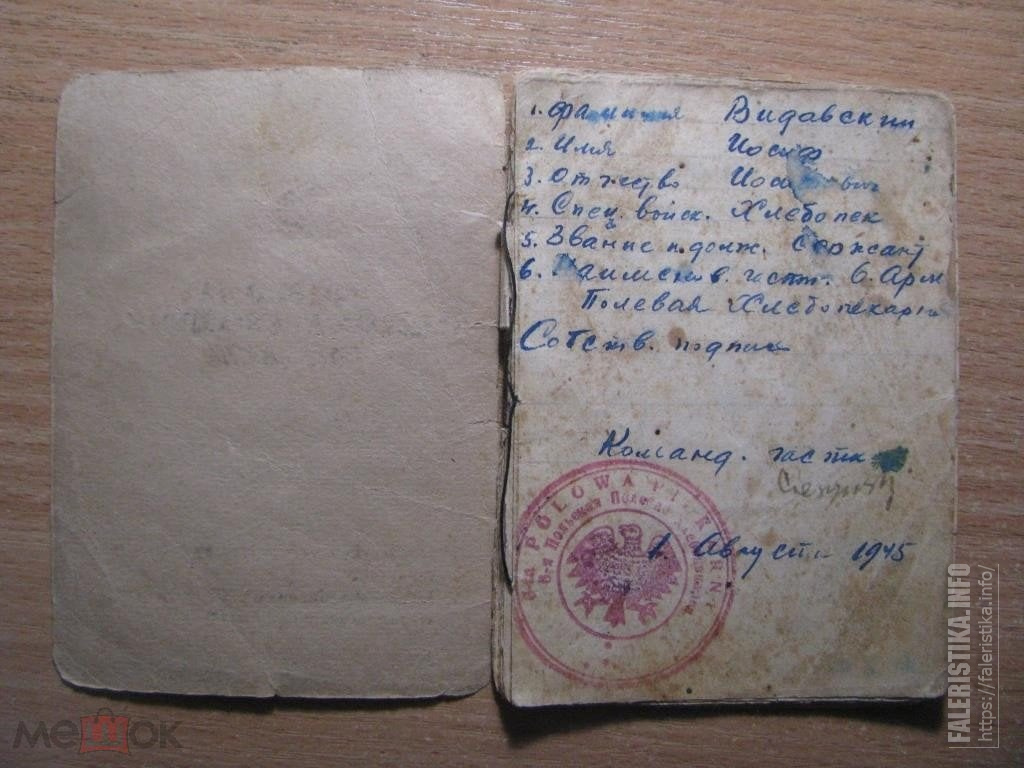 1. Фамилия Видавский
2. Имя Иосиф
3. Отчество
4. Спец. войск. Хлебопек
5. Звание и долж. Сержант
6. Наименов. части. 6. Арм
Полевая Хлебопекарня
Собств. подпись
Команд. части
1. Августа 1945
6-ta POLOWA PIEKARNIA
6-я Польская Полевая Хлебопекарня
МешОк
FALERISTIKA.INFO
https://faleristika.info/